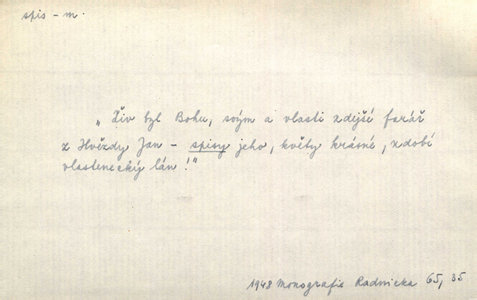 spis - m.
„Živ byl Bohu, svým a vlasti zdejší farář
z Hvězdy Jan - spisy jeho, květy krásné, zdobí
vlastenecký lán!"
1948 Monografie Radnicka 65, 35